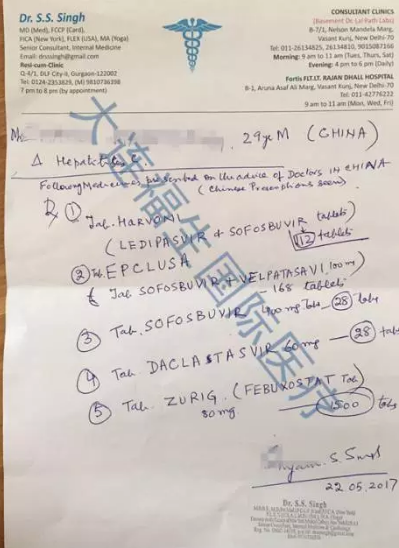 Dr. S.S. Singh
MD (Med), FCCP (Card),
FICA (New York), FLEX (USA), MA (Yoga)
Senior Consultant, Internal Medicine
Email: drsssingh@gmail.com
Resi-cum-Clinic
Q-4/1, DLF City-II, Gurgaon-122002
Tel: 0124-2353629, (M) 9810736398
7 pm to 8 pm (by appointment)
CONSULTANT CLINICS
(Basement Dr. Lal Path Labs)
B-7/1, Nelson Mandela Marg,
Vasant Kunj, New Delhi-70
Tel: 011-26134825, 26134810, 9015087166
Morning: 9 am to 11 am (Tues, Thurs, Sat)
Evening: 4 pm to 6 pm (Daily)
Fortis FLT.LT. RAJAN DHALL HOSPITAL
B-1, Aruna Asaf Ali Marg, Vasant Kunj, New Delhi-70
Tel: 011-42776222
9 am to 11 am (Mon, Wed, Fri)
29yr M (CHINA)
Δ Hepatitis C
Following Medicines prescribed on the advice of Doctors IN CHINA
(Chinese Prescriptions seen)
Rx ① Tab. HARVONI
(LEDIPASVIR + SOFOSBUVIR tablets)
112 tablets
② Tab. EPCLUSA
Tab SOFOSBUVIR + VELPATASAVI, 100 mg
168 tablets
③ Tab. SOFOSBUVIR 400 mg Tabs 28 Tabs
④ Tab. DACLASTASVIR 60 mg 28 tabs
⑤ Tab. ZURIG. (FEBUXOSTAT Tab)
80 mg 1500 tabs
S. Singh
22.05.2017
Dr. S.S. Singh
大连福生国际医疗